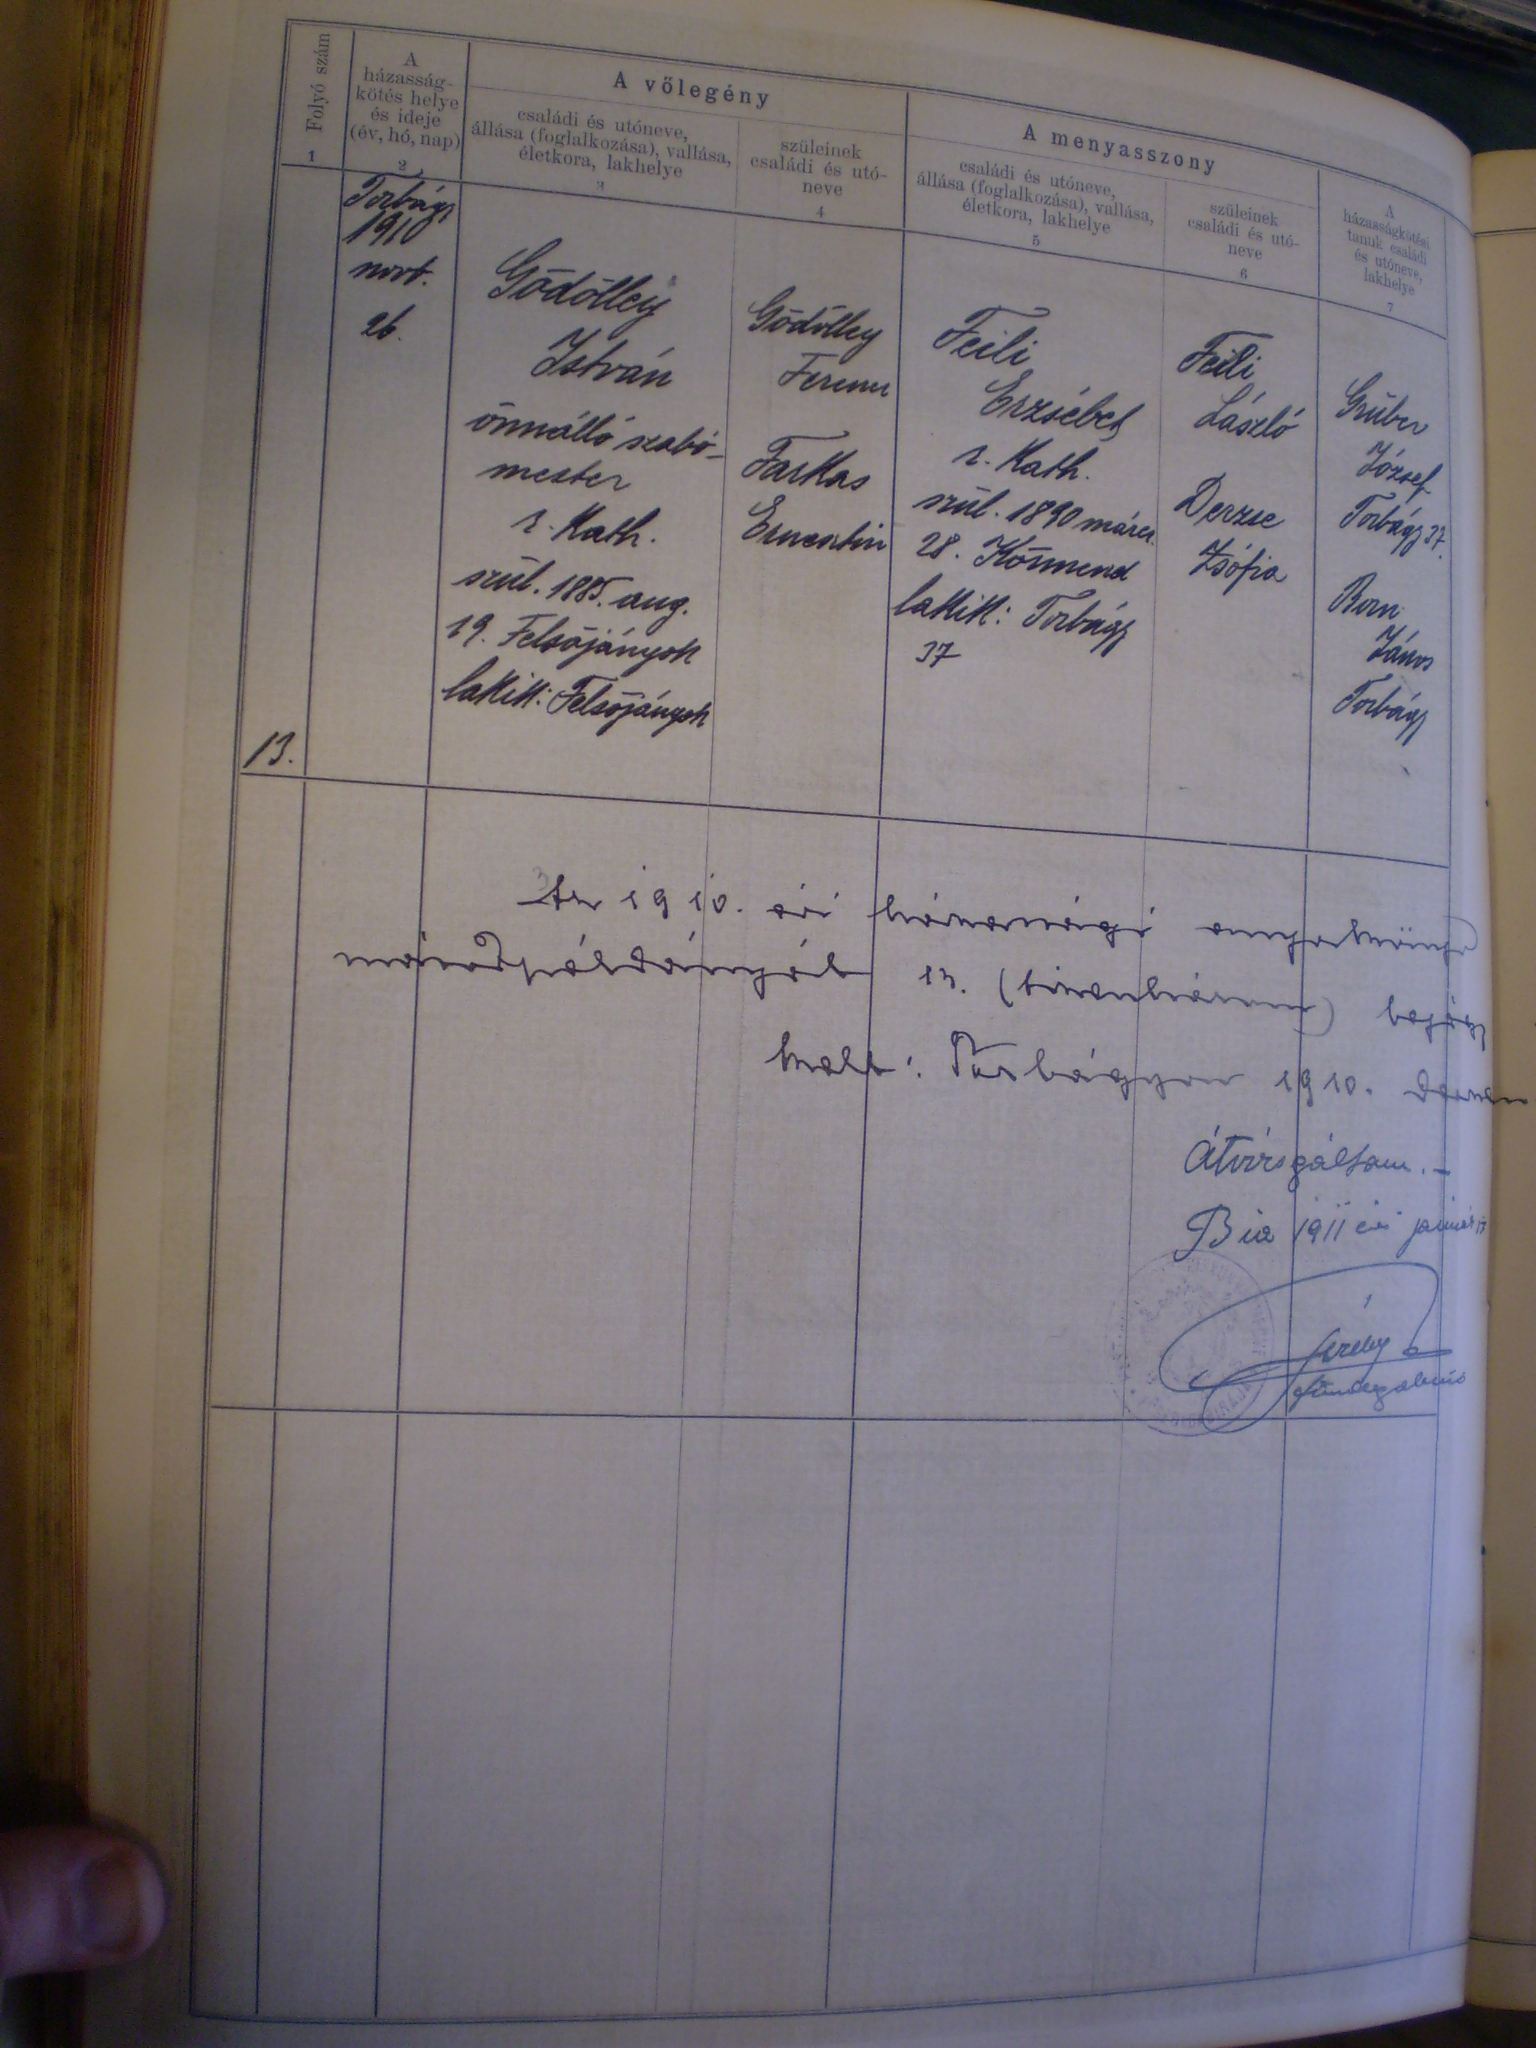 Folyó szám
1
A
házasság-
kötés helye
és ideje
(év, hó, nap)
2
A vőlegény
családi és utóneve,
állása (foglalkozása), vallása,
életkora, lakhelye
3
szüleinek
családi és utó-
neve
4
A menyasszony
családi és utóneve,
állása (foglalkozása), vallása,
életkora, lakhelye
5
szüleinek
családi és utó-
neve
6
A
házasságkötési
tanuk családi
és utóneve,
lakhelye
7
13.
Torbágy
1910
novb.
26.
Gödölley
István
önnálló szabó-
mester
r. Kath.
szül. 1885. aug.
19. Felsőjányok
lakik: Felsőjányok
Gödölley
Ferenc
Farkas
Ernesztin
Feili
Erzsébet
r. Kath.
szül. 1890 márcz.
28. Körmend
lakik: Torbágy
37
Feili
László
Derzse
Zsófia
Gruber
József
Torbágy 37.
Born
János
Torbágy
Az 1910. évi házassági anyakönyv
másodpéldányát 13. (tizenhárom) bejegy
Kelt: Torbágyon 1910. decem
Átvizsgáltam. –
Bia 1911 évi január